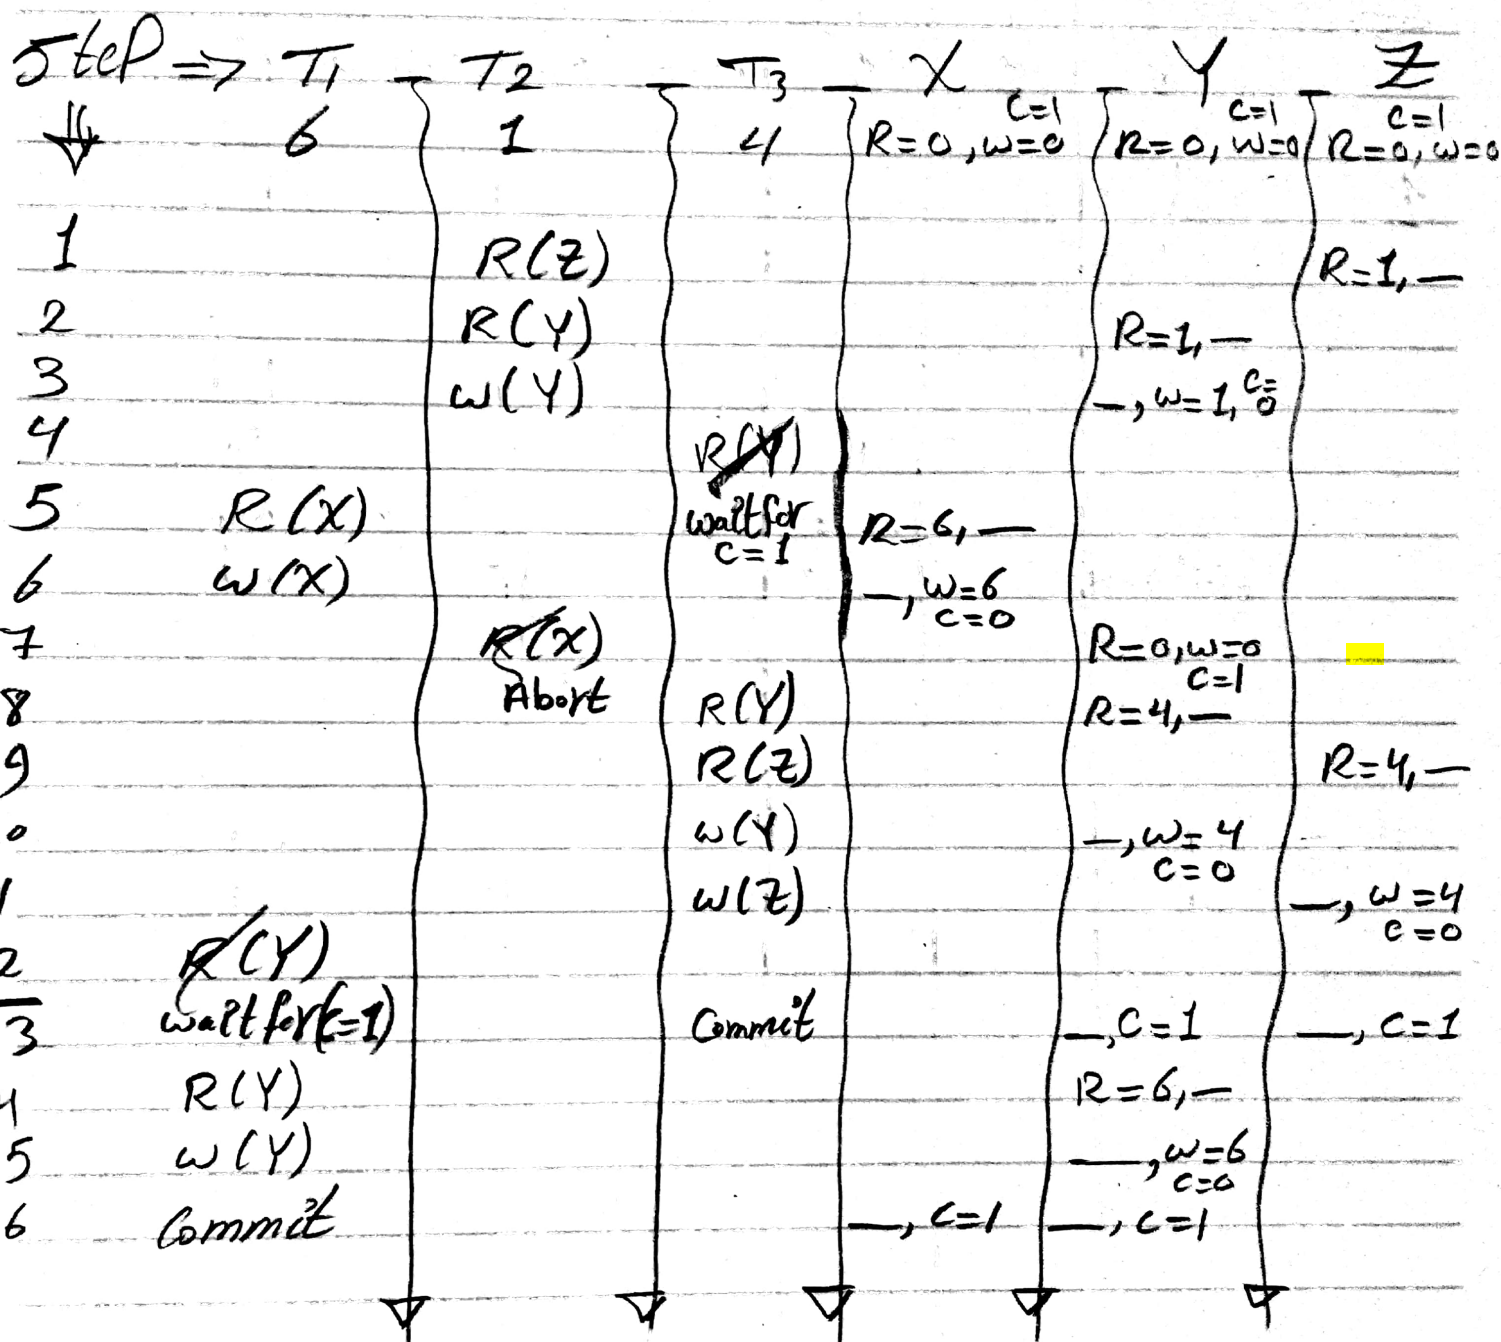 Step => T1 T2 T3 X Y Z
6 1 4 R=0, w=0 c=1 R=0, w=0 c=1 R=0, w=0 c=1
1 R(Z) R=1, —
2 R(Y) R=1, —
3 w(Y) —, w=1, c=0
4 R(Y)
5 R(X) wait for c=1 R=6, —
6 w(X) —, w=6 c=0
7 R(X) R=0, w=0 c=1
8 Abort R(Y) R=4, —
9 R(Z) R=4, —
0 w(Y) —, w=4 c=0
1 w(Z) —, w=4 c=0
2 R(Y)
3 wait for (c=1) Commit —, C=1 —, C=1
4 R(Y) R=6, —
5 w(Y) —, w=6 c=0
6 Commit —, C=1 —, C=1